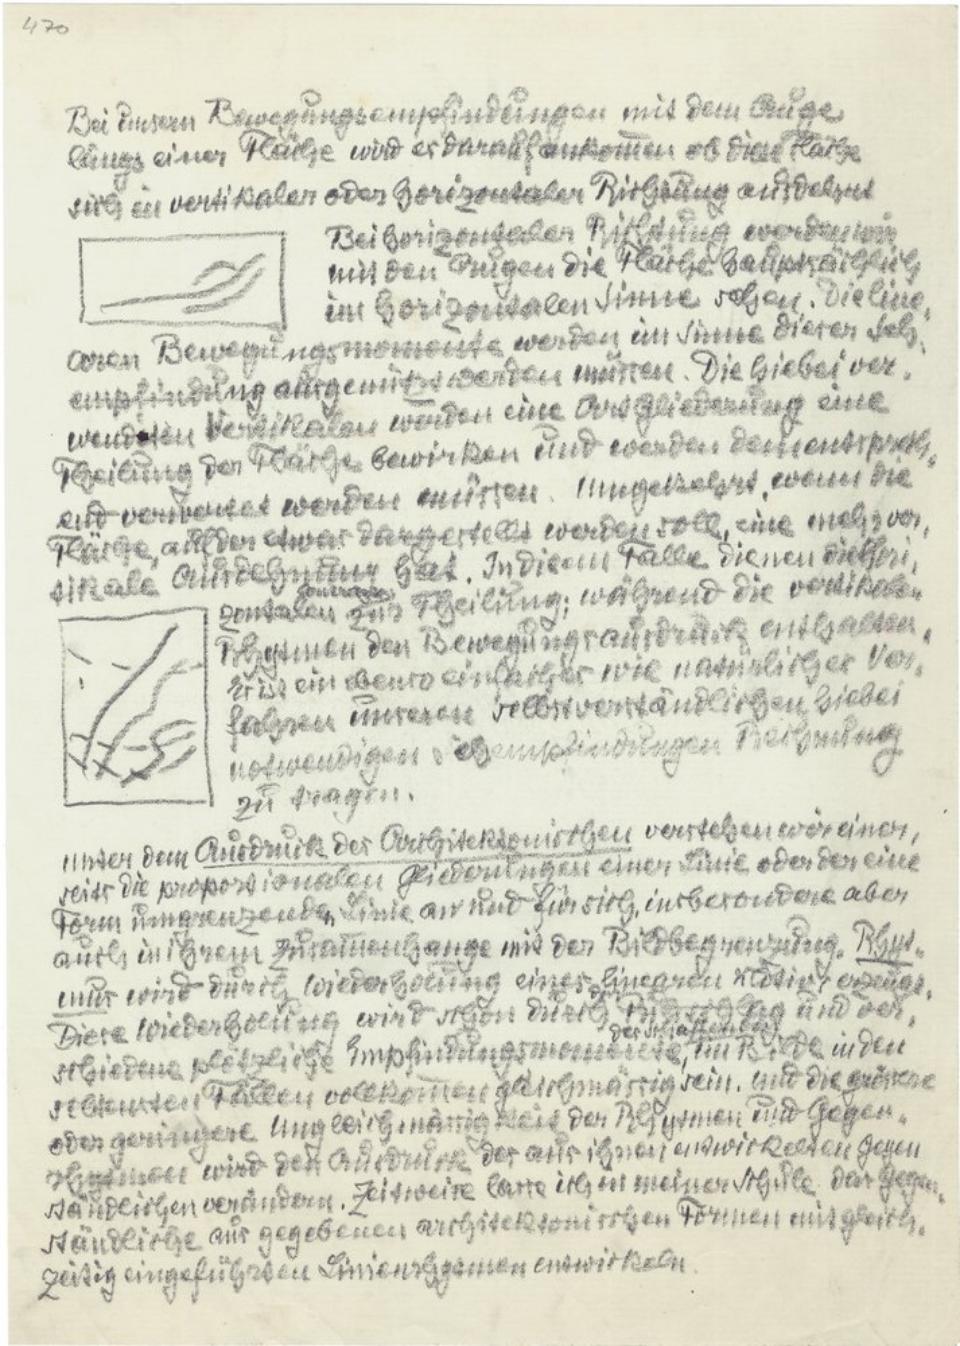 470
Bei unsern Bewegungsempfindungen mit dem Auge
längs einer Fläche wird es darauf ankommen ob diese Fläche
sich in vertikaler oder horizontaler Richtung ausdehnt
Bei horizontaler Richtung werden wir
mit den Augen die Fläche hauptsächlich
im horizontalen Sinne sehen. Die line,
aren Bewegungsmomente werden im Sinne dieser Seh,
empfindung ausgenützt werden müssen. Die hiebei ver,
wendeten Vertikalen werden eine Ortsgliederung eine
Theilung der Fläche bewirken und werden dementsprech,
end verwertet werden müssen. Umgekehrt, wenn die
Fläche, auf der etwas dargestellt werden soll, eine mehr ver,
tikale Ausdehnung hat. In diesem Falle dienen die Hori,
zontalen zur Theilung; während die vertikalen
Rhytmen den Bewegungsausdruck enthalten.
Es ist ein ebenso einfaches wie natürliches Ver,
fahren unseren selbstverständlichen hiebei
notwendigen Sehempfindungen Rechnung
zu tragen.
Unter dem Ausdruck des Architektonischen verstehen wir einer,
seits die proportionalen Gliederungen einer Linie oder der eine
Form umgrenzenden Linie an und für sich, insbesondere aber
auch in ihrem Zusammenhange mit der Bildbegrenzung. Rhyt-
mus wird durch Wiederholung eines linearen Motivs erzeugt.
Diese Wiederholung wird schon durch und ver,
schiedene plötzliche Empfindungsmomente des Schaffenden, im Bilde in den
seltensten Fällen vollkommen gleichmässig sein. Und die grössere
oder geringere Ungleichmässigkeit der Rhytmen und Gegen-
rhytmen wird den Ausdruck des aus ihnen entwickelten Gegen
ständlichen verändern. Zeitweise lasse ich in meiner Schule das Gegen,
ständliche aus gegebenen architektonischen Formen mit gleich,
zeitig eingeführten Linienrhytmen entwickeln.